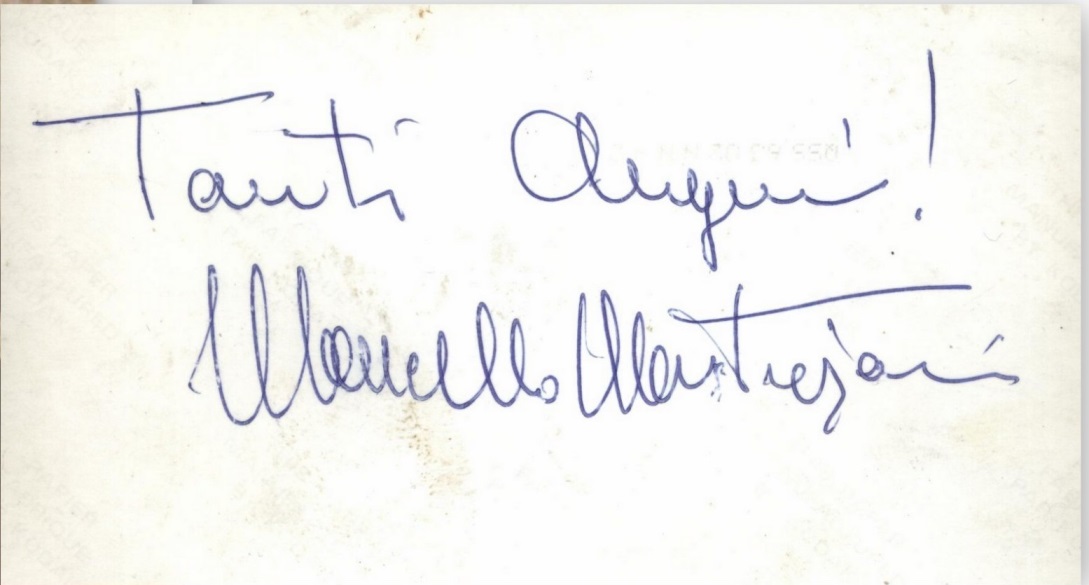 Tanti Auguri!
Marcello Mastrojanni